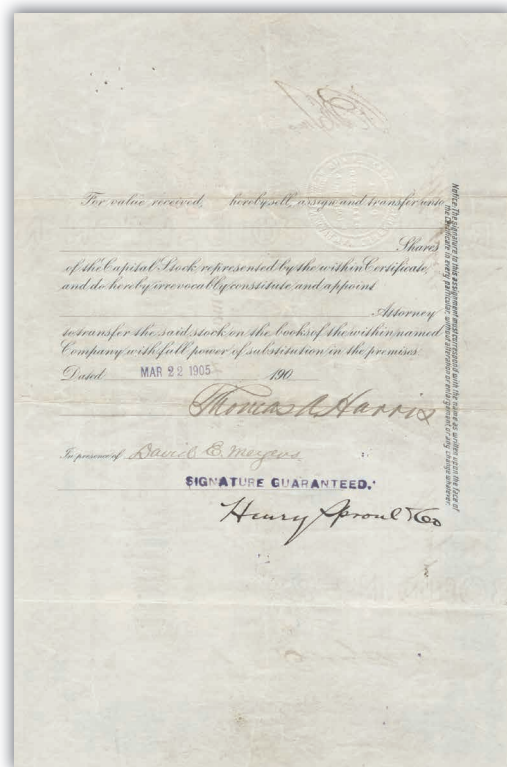 For value received, hereby sell, assign and transfer unto
Shares
of the Capital Stock represented by the within Certificate,
and do hereby irrevocably constitute and appoint
Attorney
to transfer the said stock on the books of the within named
Company with full power of substitution in the premises
Dated MAR 22 1905 190
Thomas A Harris
In presence of David E. Meyers
SIGNATURE GUARANTEED.
Henry Sproul & Co
Notice: The signature to this assignment must correspond with the name as written upon the face of
the Certificate in every particular, without alteration or enlargement or any change whatever.